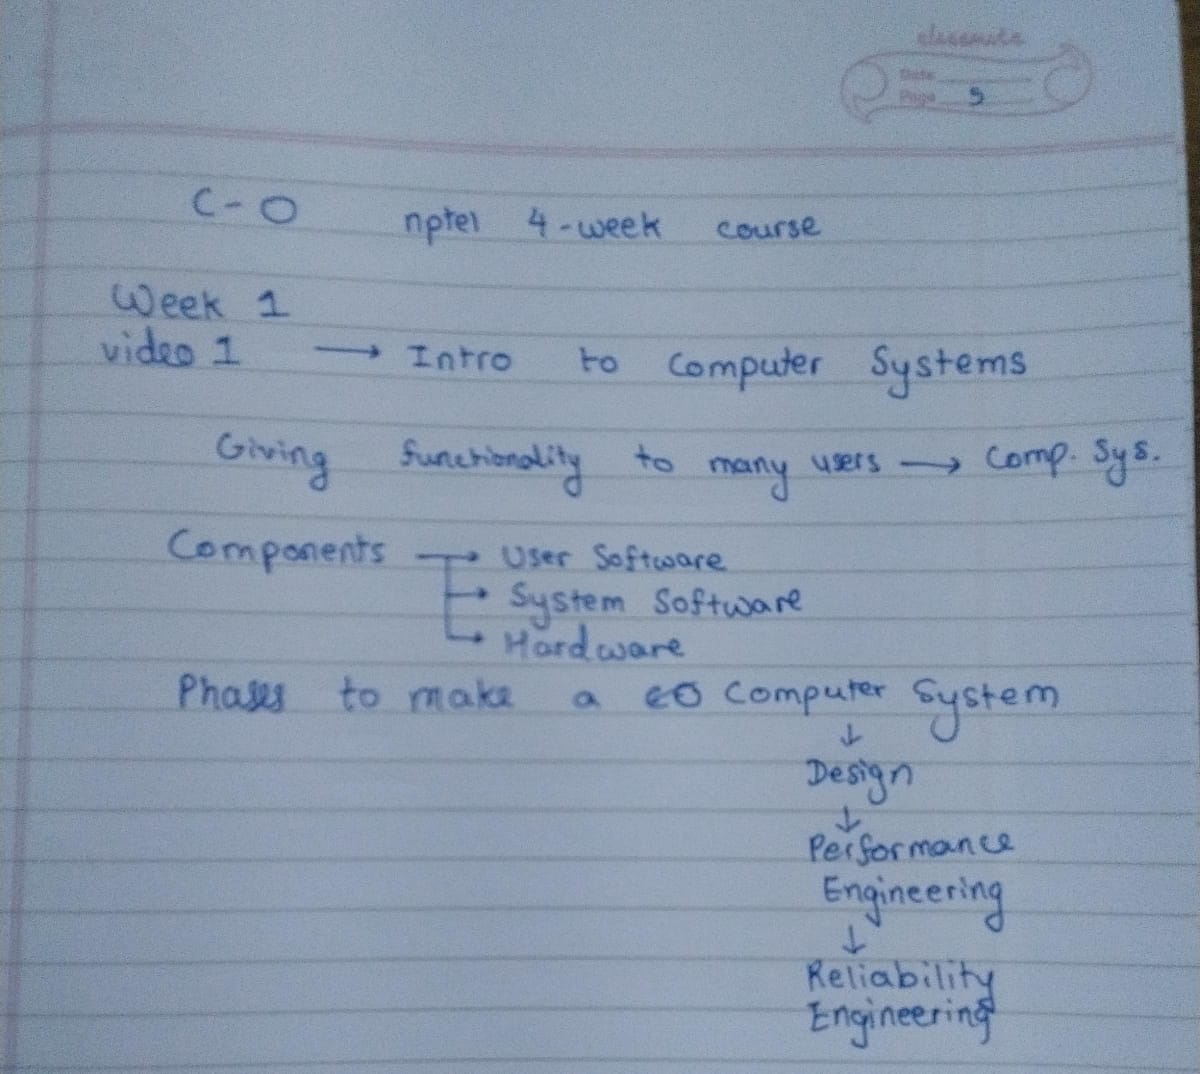 classmate
Date
Page 5
C-O nptel 4-week course
Week 1
video 1 → Intro to Computer Systems
Giving functionality to many users → Comp. Sys.
Components → User Software
→ System Software
→ Hardware
Phases to make a Computer System
↓
Design
↓
Performance
Engineering
↓
Reliability
Engineering